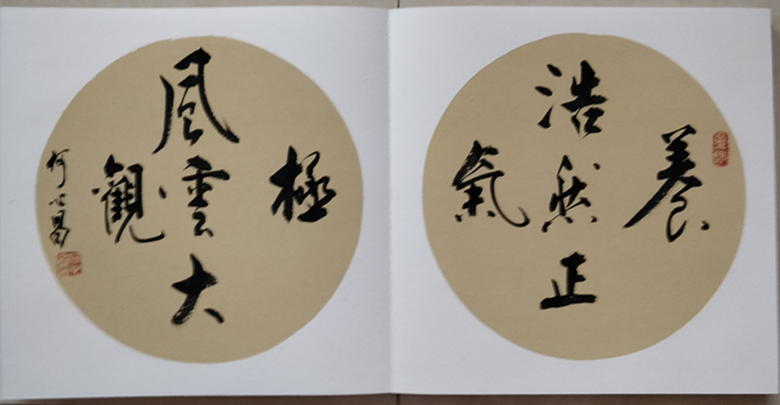 養
浩然正
氣
極
風雲大
觀
何